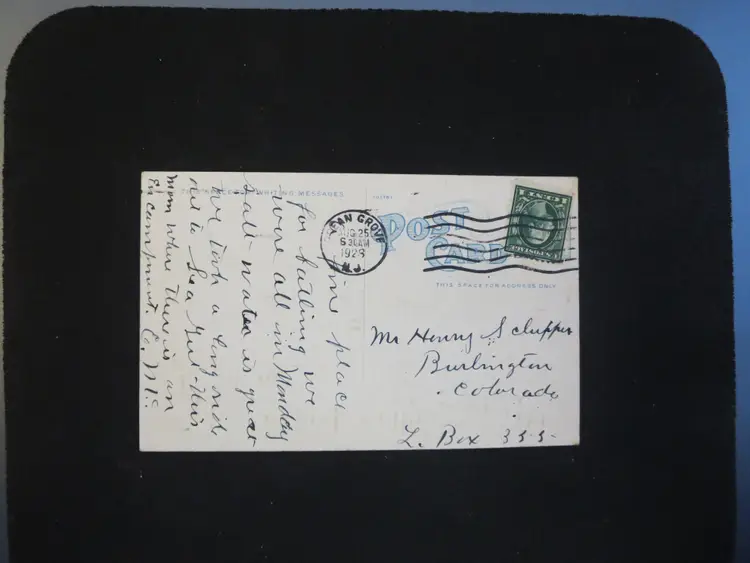 WRITING MESSAGES
fine place
for bathing we
were all in Monday
salt water is great
we took a long ride
Sea Girt this
morn where there is an
Encampment.
OCEAN GROVE
AUG 25
6 30 AM
N.J.
POST CARD
THIS SPACE FOR ADDRESS ONLY
Mr Henry Schupper
Burlington
Colorado
L. Box 333